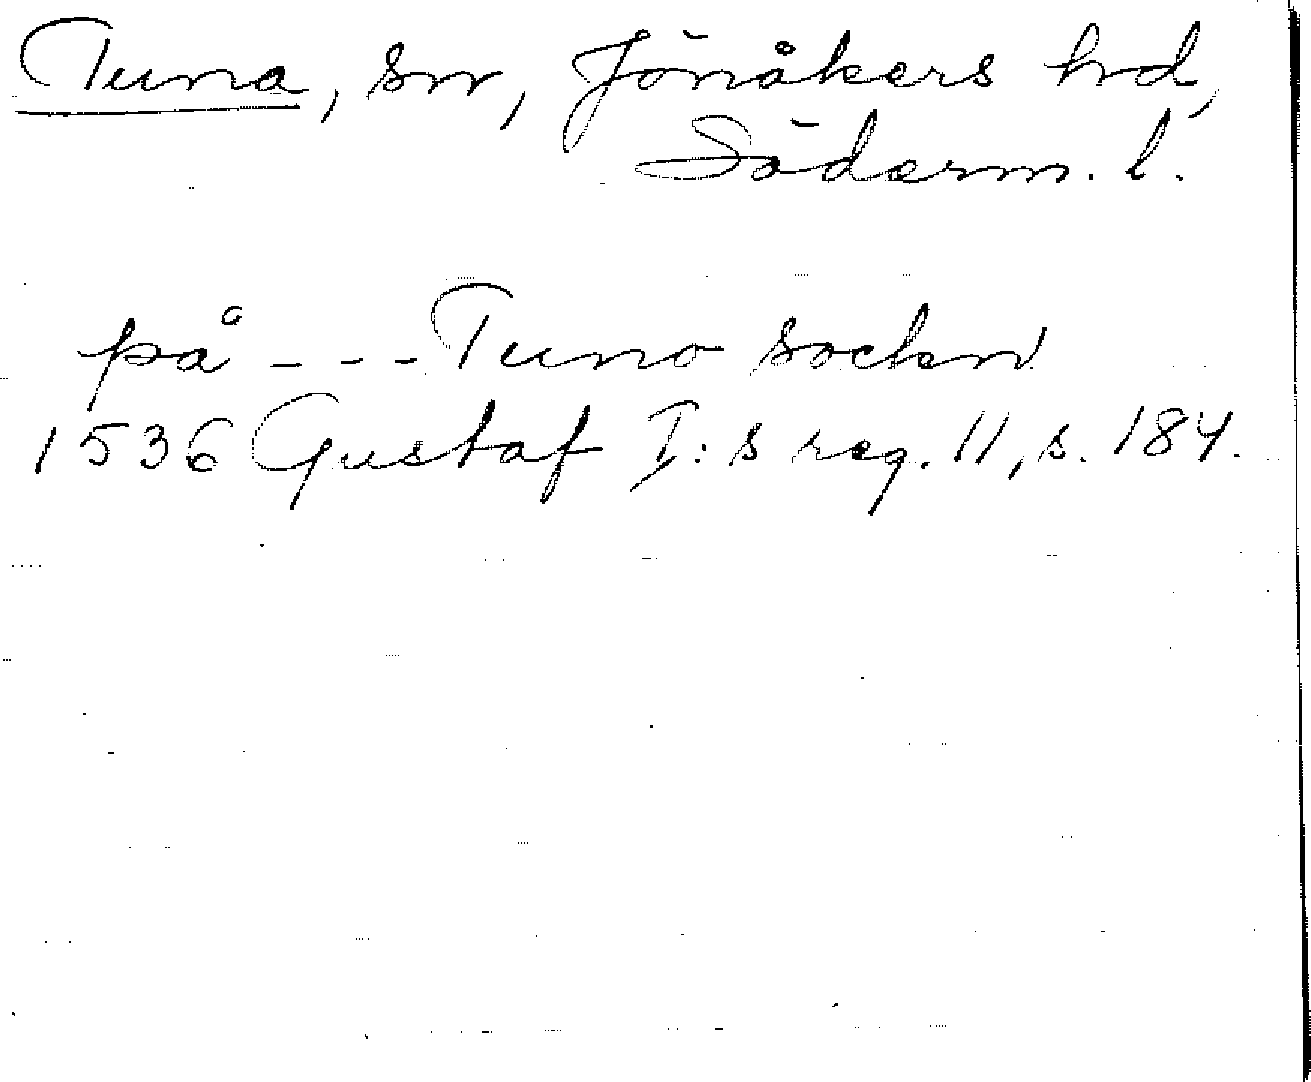 Tuna, sn, Jönåkers hd,
Söderm. l.
på - - - Tuno sockn
1536 Gustaf I:s reg. 11, s. 184.